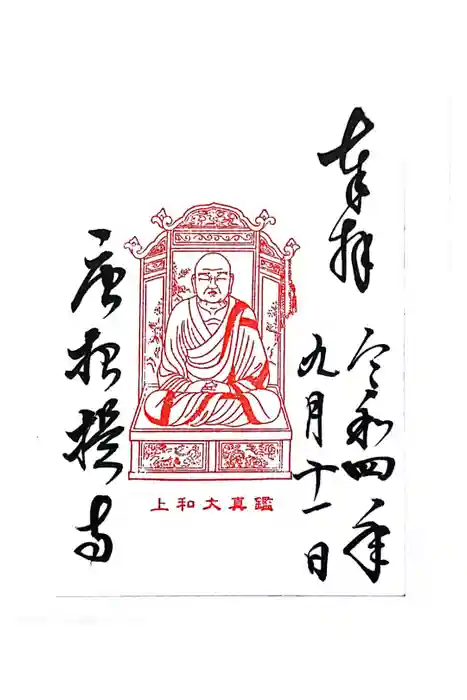 奉拝
令和四年
九月十一日
上和大真鑑
唐招提寺